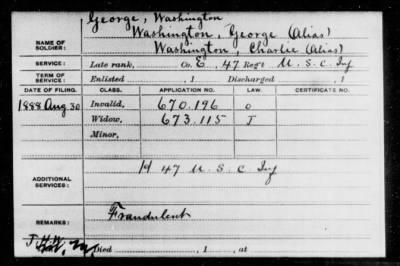 NAME OF SOLDIER: George, Washington
Washington, George (Alias)
Washington, Charlie (Alias)
SERVICE: Late rank, Co. E, 47 Reg't U. S. C. Inf
TERM OF SERVICE: Enlisted , 1 Discharged , 1
DATE OF FILING. CLASS. APPLICATION NO. LAW. CERTIFICATE NO.
1888 Aug 30 Invalid, 670.196 O
Widow, 673.115 J
Minor,
ADDITIONAL SERVICES: H 47 U. S. C Inf
REMARKS: Fraudulent
Died , 1 , at